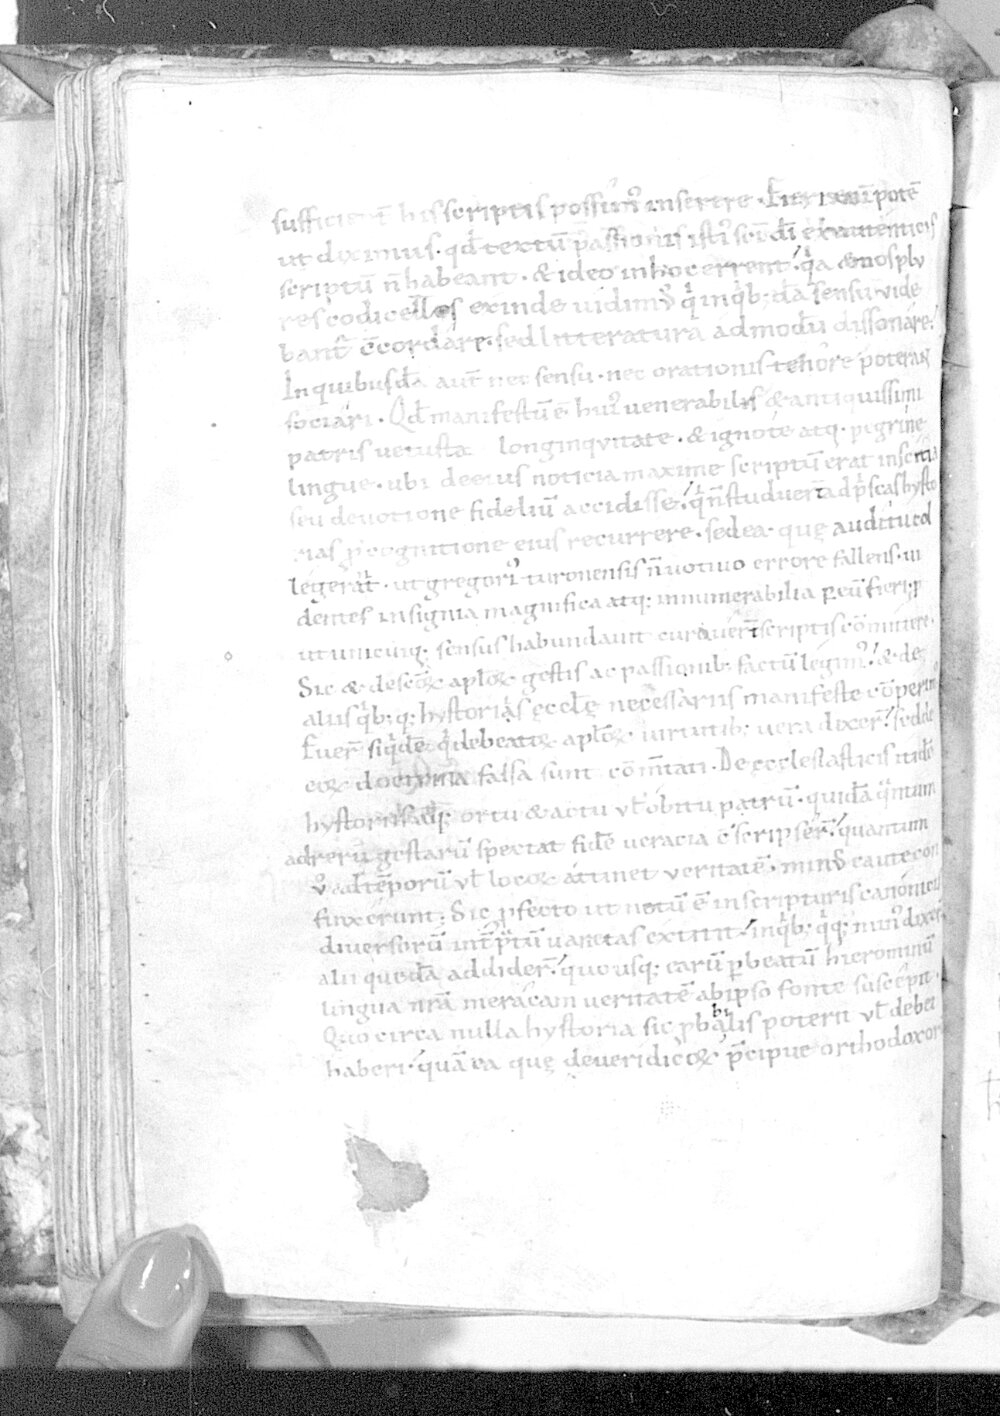 sufficient̄ his scriptis possum᷒ inserere. Fieri eni᷒ potē
ut diximus. qđ textū passionis isti᷒ sc̄i dī ex autenticis
scriptū n̄ habeant. & ideo in hoc errent. q̓a & nos plu
res codicellos exinde uidim᷒ q̓ in q̓b; dā sensu uide
bant᷒ c̄cordare. sed litteratura admodū dissonare.
In quibusdā aut̄ nec sensu. nec orationis tenore poterat
sociari. Qđ manifestū ē hui᷒ uenerabilis & antiquissimi
patris uetusta longinquitate. & ignote atq. pegrine
lingue. ubi de eius noticia maxime scriptū erat inscitia
seu deuotione fideliū accidisse. q̓ n̄ studuer̄t ad p̓scas hysto
rias p̱ cognitione eius recurrere. sed ea quę auditu col
legerat̄. ut gregori᷒ turonensis n̄ uotiuo errore fallens. ui
dentes insignia magnifica atq; innumerabilia p eū fieri; p
ut unicuiq; sensus habundauit curauer̄t scriptis cōmittere.
Sic & de sc̄oꝝ aploꝝ gestis ac passionib; factū legim᷒. & de
aliis q̓b; q; hystoriis ęcclę necessariis manifeste cōperim᷒
Fuer̄ siq̓dē q̓ de beatoꝝ aploꝝ uirtutib; uera dixer̄. sed de
eoꝝ doctrina falsa sunt cōm̄tati. De ęcclesiasticis itidē
hystoriis atq; ortu & actu ul̄ obitu patrū. quidā q̓ntum
ad rerū gestarū spectat fidē ueracia c̄scripser̄. quantum
u᷒ ad tēporū ul̄ locoꝝ attinet ueritatē. min᷒ caute con
finxerunt. Sic pfecto ut notū ē in scripturis canonicis
diuersorū int̄p̄tū uarietas extitit. in q̓b; q̓q; min᷒ dixer̄
alii quedā addider̄. quo usq; earū p beatū hieronimū
lingua nr̄a meracam ueritatē ab ipso fonte suscepit.
Quo circa nulla hystoria sic p̱babilis poterit ul̄ debet
haberi. quā ea quę de ueridicoꝝ p̄cipue orthodoxor